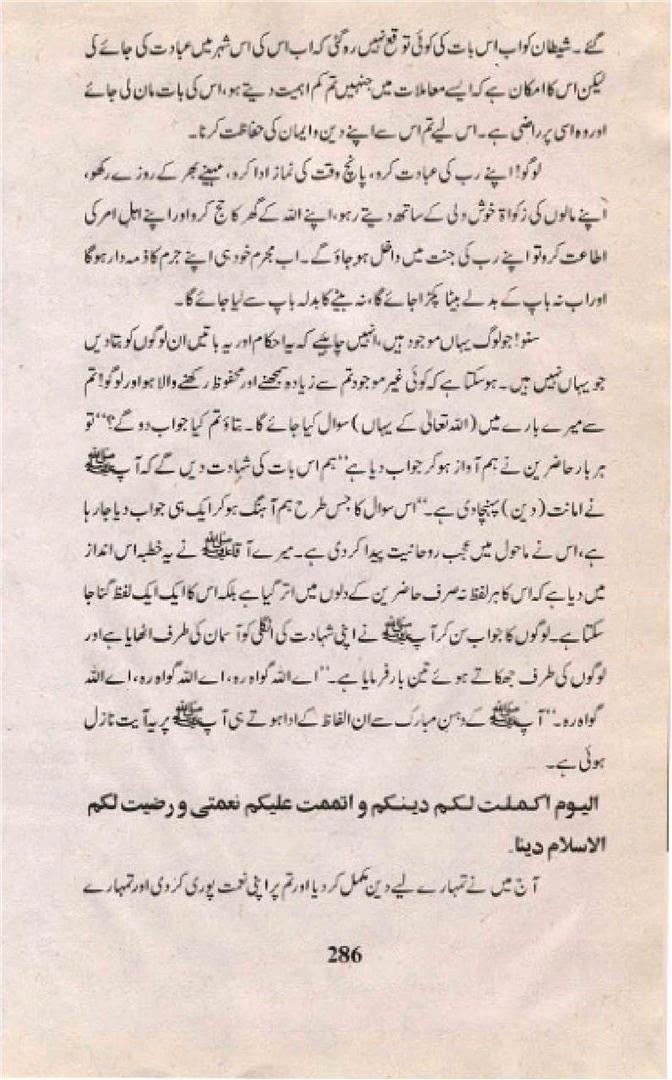 گئے۔ شیطان کو اب اس بات کی کوئی توقع نہیں رہ گئی کہ اب اس کی اس شہر میں عبادت کی جائے گی
لیکن اس کا امکان ہے کہ ایسے معاملات میں جنہیں تم کم اہمیت دیتے ہو، اس کی بات مان لی جائے
اور وہ اسی پر راضی ہے۔ اس لیے تم اس سے اپنے دین و ایمان کی حفاظت کرنا۔
لوگو! اپنے رب کی عبادت کرو، پانچ وقت کی نماز ادا کرو، مہینے بھر کے روزے رکھو،
اپنے مالوں کی زکواۃ خوش دلی کے ساتھ دیتے رہو، اپنے اللہ کے گھر کا حج کرو اور اپنے اہل امر کی
اطاعت کرو تو اپنے رب کی جنت میں داخل ہو جاؤ گے۔ اب مجرم خود ہی اپنے جرم کا ذمہ دار ہوگا
اور اب نہ باپ کے بدلے بیٹا پکڑا جائے گا، نہ بیٹے کا بدلہ باپ سے لیا جائے گا۔
سنو! جو لوگ یہاں موجود ہیں، انہیں چاہیئے کہ یہ احکام اور یہ باتیں ان لوگوں کو بتا دیں
جو یہاں نہیں ہیں۔ ہو سکتا ہے کہ کوئی غیر موجود تم سے زیادہ سمجھنے اور محفوظ رکھنے والا ہو اور لوگو! تم
سے میرے بارے میں (اللہ تعالیٰ کے یہاں) سوال کیا جائے گا۔ بتاؤ تم کیا جواب دو گے؟‘‘ تو
ہر بار حاضرین نے ہم آواز ہو کر جواب دیا ہے ’’ہم اس بات کی شہادت دیں گے کہ آپ ﷺ
نے امانت (دین) پہنچا دی ہے۔‘‘ اس سوال کا جس طرح ہم آہنگ ہو کر ایک ہی جواب دیا جا رہا
ہے، اس نے ماحول میں عجب روحانیت پیدا کر دی ہے۔ میرے آقا ﷺ نے یہ خطبہ اس انداز
میں دیا ہے کہ اس کا ہر لفظ نہ صرف حاضرین کے دلوں میں اتر گیا ہے بلکہ اس کا ایک ایک لفظ گنا جا
سکتا ہے۔ لوگوں کا جواب سن کر آپ ﷺ نے اپنی شہادت کی انگلی کو آسمان کی طرف اٹھایا ہے اور
لوگوں کی طرف جھکاتے ہوئے تین بار فرمایا ہے۔ ’’اے اللہ گواہ رہ، اے اللہ گواہ رہ، اے اللہ
گواہ رہ۔‘‘ آپ ﷺ کے دہن مبارک سے ان الفاظ کے ادا ہوتے ہی آپ ﷺ پر یہ آیت نازل
ہوئی ہے۔
الیوم اکملت لکم دینکم و اتممت علیکم نعمتی و رضیت لکم
الاسلام دینا۔
آج میں نے تمہارے لیے دین مکمل کر دیا اور تم پر اپنی نعمت پوری کر دی اور تمہارے
286